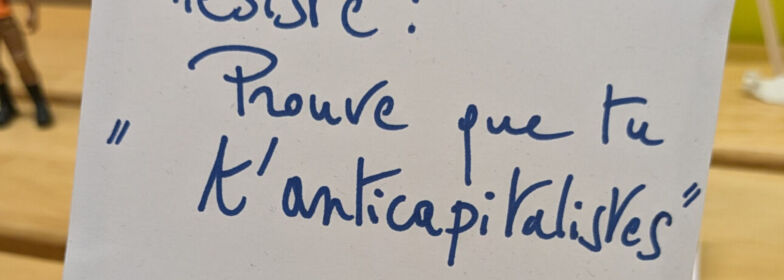 résiste !
Prouve que tu
" t'anticapitalistes "